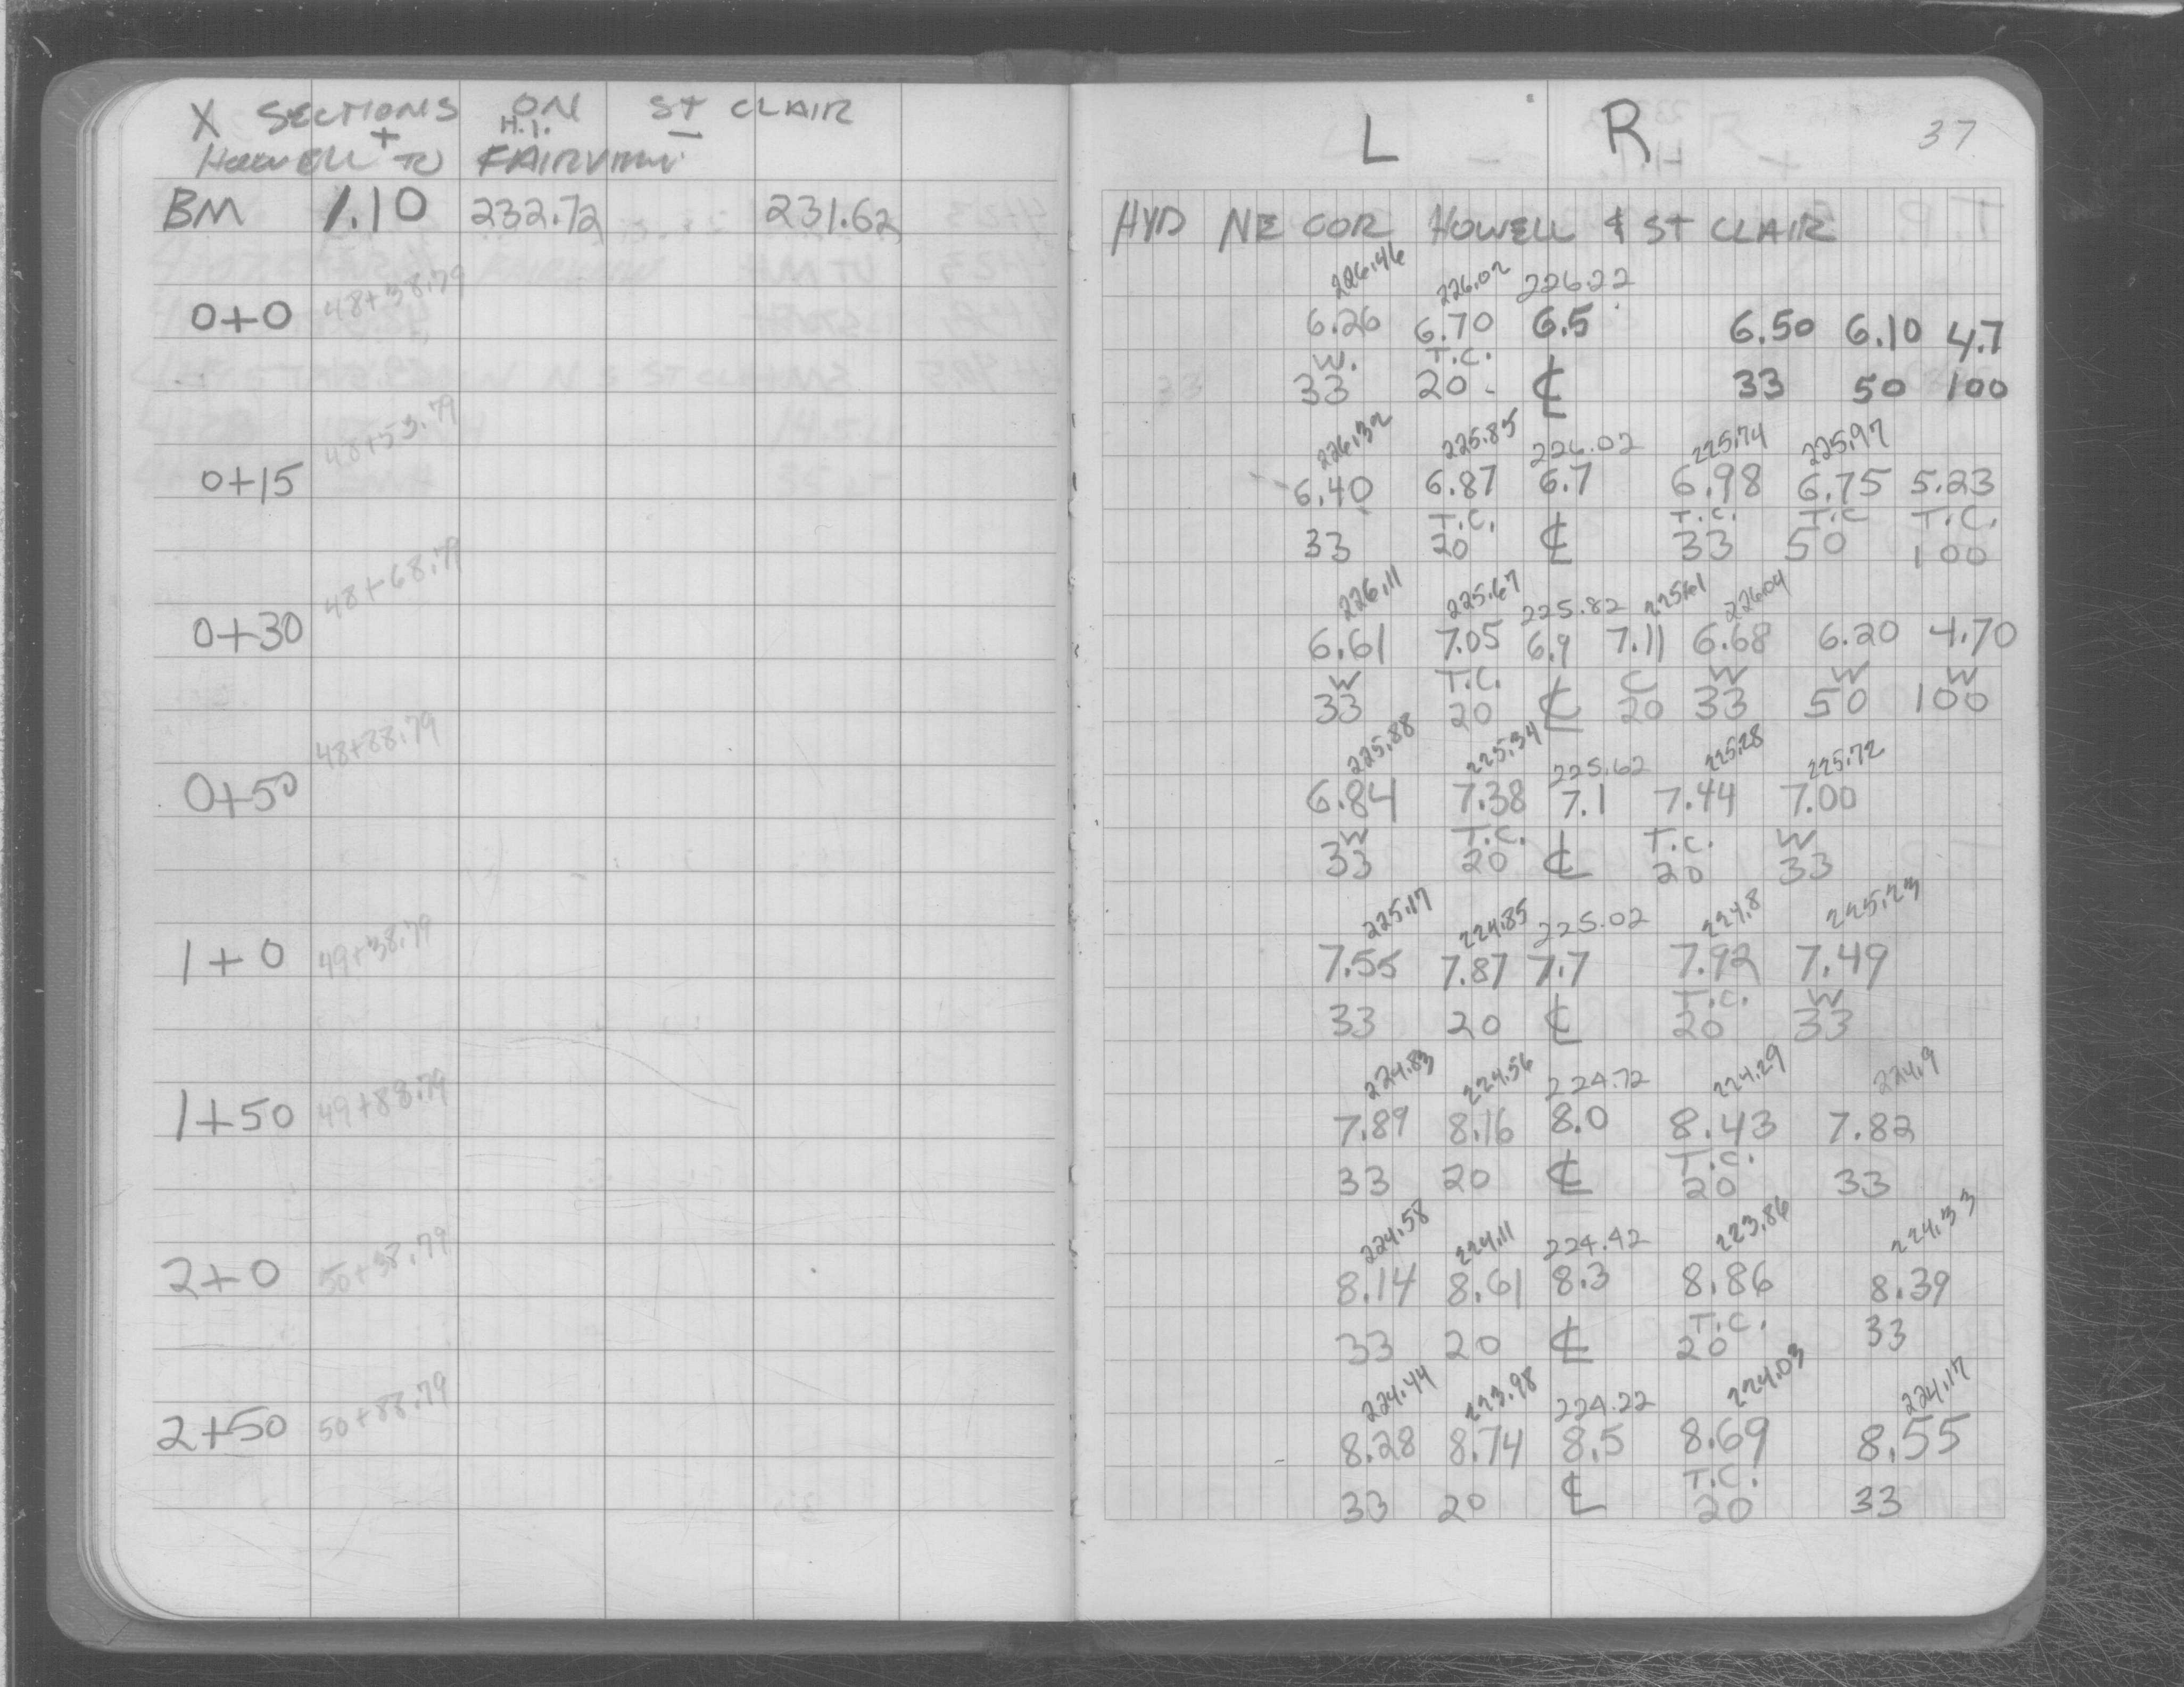 X SECTIONS ON ST CLAIR
+ H.I. −
HOWELL TO FAIRVIEW
BM 1.10 232.72 231.62
0+0 48+38.79
48+53.79
0+15
48+68.79
0+30
48+88.79
0+50
1+0 49+38.79
1+50 49+88.79
2+0 50+38.79
2+50 50+88.79
L R 37
HYD NE COR HOWELL & ST CLAIR
226.46 226.02 226.22
6.26 6.70 6.5 6.50 6.10 4.7
W. T.C.
33 20 ℄ 33 50 100
226.32 225.85 226.02 225.74 225.97
6.40 6.87 6.7 6.98 6.75 5.23
T.C. T.C. T.C T.C.
33 20 ℄ 33 50 100
226.11 225.67 225.82 225.61 226.04
6.61 7.05 6.9 7.11 6.68 6.20 4.70
W T.C. C W W W
33 20 ℄ 20 33 50 100
225.88 225.34 225.62 225.28 225.72
6.84 7.38 7.1 7.44 7.00
W T.C. T.C. W
33 20 ℄ 20 33
225.17 224.85 225.02 224.8 225.23
7.55 7.87 7.7 7.92 7.49
T.C. W
33 20 ℄ 20 33
224.83 224.56 224.72 224.29 224.9
7.89 8.16 8.0 8.43 7.82
T.C.
33 20 ℄ 20 33
224.58 224.11 224.42 223.86 224.33
8.14 8.61 8.3 8.86 8.39
T.C.
33 20 ℄ 20 33
224.44 223.98 224.22 224.03 224.17
8.28 8.74 8.5 8.69 8.55
T.C.
33 20 ℄ 20 33